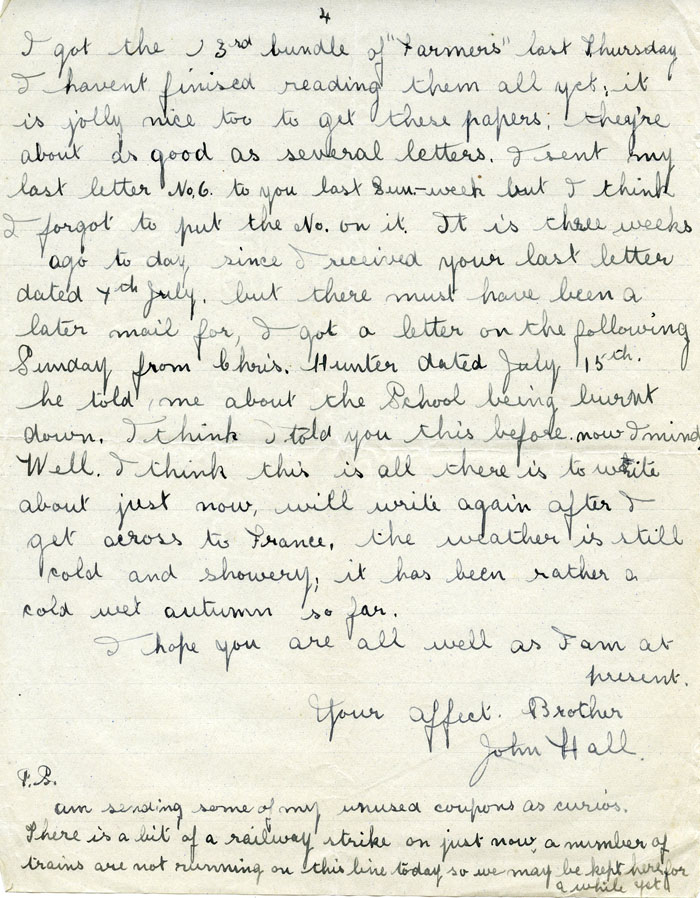 4
I got the 3rd bundle of "Farmers" last Thursday
I havent finised reading them all yet; it
is jolly nice too to get these papers; they're
about as good as several letters. I sent my
last letter No,6. to you last Sun-week but I think
I forgot to put the No. on it. It is three weeks
ago to day since I received your last letter
dated 4th July. but there must have been a
later mail for, I got a letter on the following
Sunday from Chris. Hunter dated July 15th.
he told me about the School being burnt
down. I think I told you this before. now I mind
Well. I think this is all there is to write
about just now, will write again after I
get across to France. the weather is still
cold and showery; it has been rather a
cold wet autumn so far.
I hope you are all well as I am at
present.
Your affect. Brother
John Hall.
P.S.
am sending some of my unused coupons as curios.
There is a bit of a railway strike on just now, a number of
trains are not running on this line today so we may be kept here for
a while yet